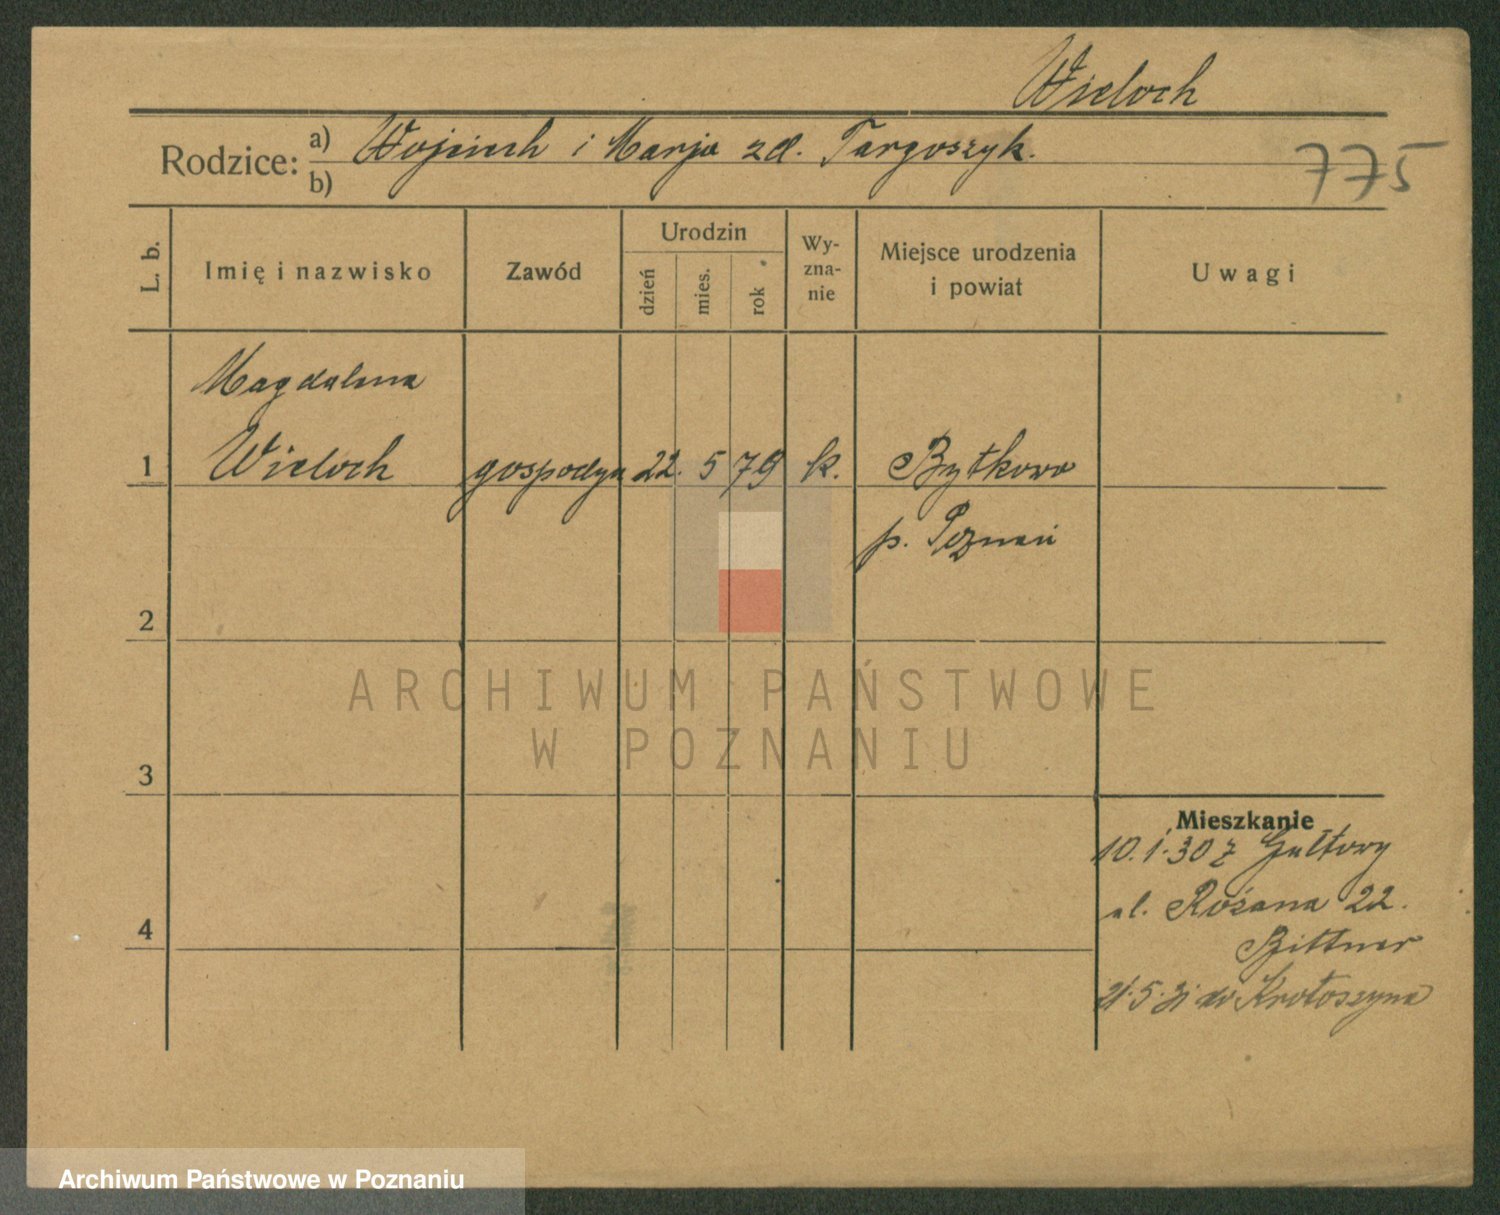 Wieloch
Rodzice: a) Wojciech i Marja zd. Targoszyk.
b)
775
L. b.
Imię i nazwisko
Zawód
Urodzin
dzień
mies.
rok
Wy-
zna-
nie
Miejsce urodzenia
i powiat
Uwagi
Magdalena
1 Wieloch gospodyni 22. 5 79 k. Bytkowo
p. Poznań
2
3
4
ARCHIWUM PAŃSTWOWE
W POZNANIU
Mieszkanie
10.1.30 z Gułtowy
ul. Różana 22.
Bittner
21.5.31 do Krotoszyna
Archiwum Państwowe w Poznaniu